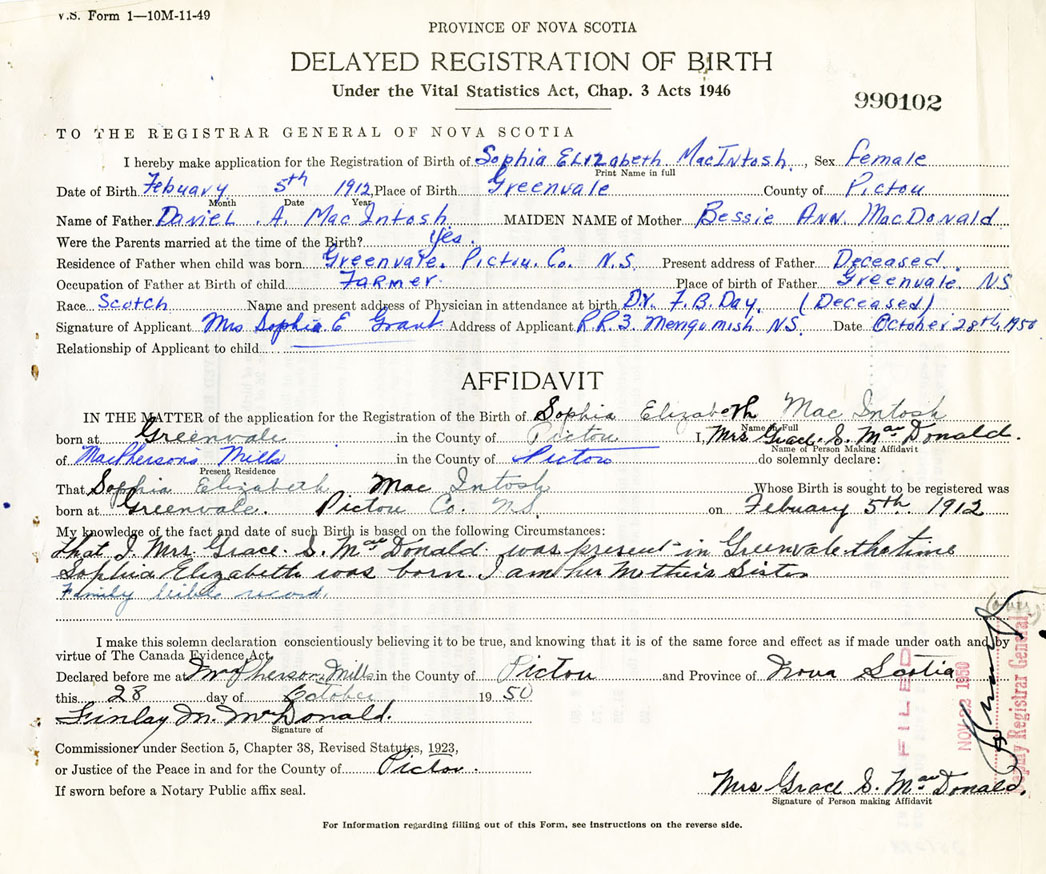 V.S. Form 1—10M-11-49
PROVINCE OF NOVA SCOTIA
DELAYED REGISTRATION OF BIRTH
Under the Vital Statistics Act, Chap. 3 Acts 1946
990102
TO THE REGISTRAR GENERAL OF NOVA SCOTIA
I hereby make application for the Registration of Birth of Sophia Elizabeth MacIntosh, Sex female
Print Name in full
Date of Birth Febuary 5th 1912 Place of Birth Greenvale County of Pictou
Month Date Year
Name of Father Daniel A. MacIntosh MAIDEN NAME of Mother Bessie Ann MacDonald
Were the Parents married at the time of the Birth? Yes.
Residence of Father when child was born Greenvale, Pictou Co. N.S. Present address of Father Deceased
Occupation of Father at Birth of child Farmer Place of birth of Father Greenvale NS
Race Scotch Name and present address of Physician in attendance at birth Dr. F.B. Day. (Deceased)
Signature of Applicant Mrs Sophia E Grant Address of Applicant R.R.3. Merigomish NS. Date October 28th, 1950
Relationship of Applicant to child
AFFIDAVIT
IN THE MATTER of the application for the Registration of the Birth of Sophia Elizabeth Mac Intosh
Name in Full
born at Greenvale in the County of Pictou I, Mrs Grace. S. MacDonald.
Name of Person Making Affidavit
of MacPherson's Mills in the County of Pictou do solemnly declare:
Present Residence
That Sophia Elizabeth Mac Intosh Whose Birth is sought to be registered was
born at Greenvale. Pictou Co. N.S. on Febuary 5th. 1912
My knowledge of the fact and date of such Birth is based on the following Circumstances:
that I Mrs. Grace. S. MacDonald was present in Greenvale the time
Sophia Elizabeth was born. I am her Mother's Sister
Family bible record.
I make this solemn declaration conscientiously believing it to be true, and knowing that it is of the same force and effect as if made under oath and by
virtue of The Canada Evidence Act.
Declared before me at McPherson Mills in the County of Pictou and Province of Nova Scotia
this 28 day of October 1950
Finlay M. McDonald.
Signature of
Commissioner under Section 5, Chapter 38, Revised Statutes, 1923,
or Justice of the Peace in and for the County of Pictou.
If sworn before a Notary Public affix seal.
Mrs Grace S. MacDonald.
Signature of Person making Affidavit
For Information regarding filling out of this Form, see instructions on the reverse side.
FILED
NOV 22 1950
Deputy Registrar General